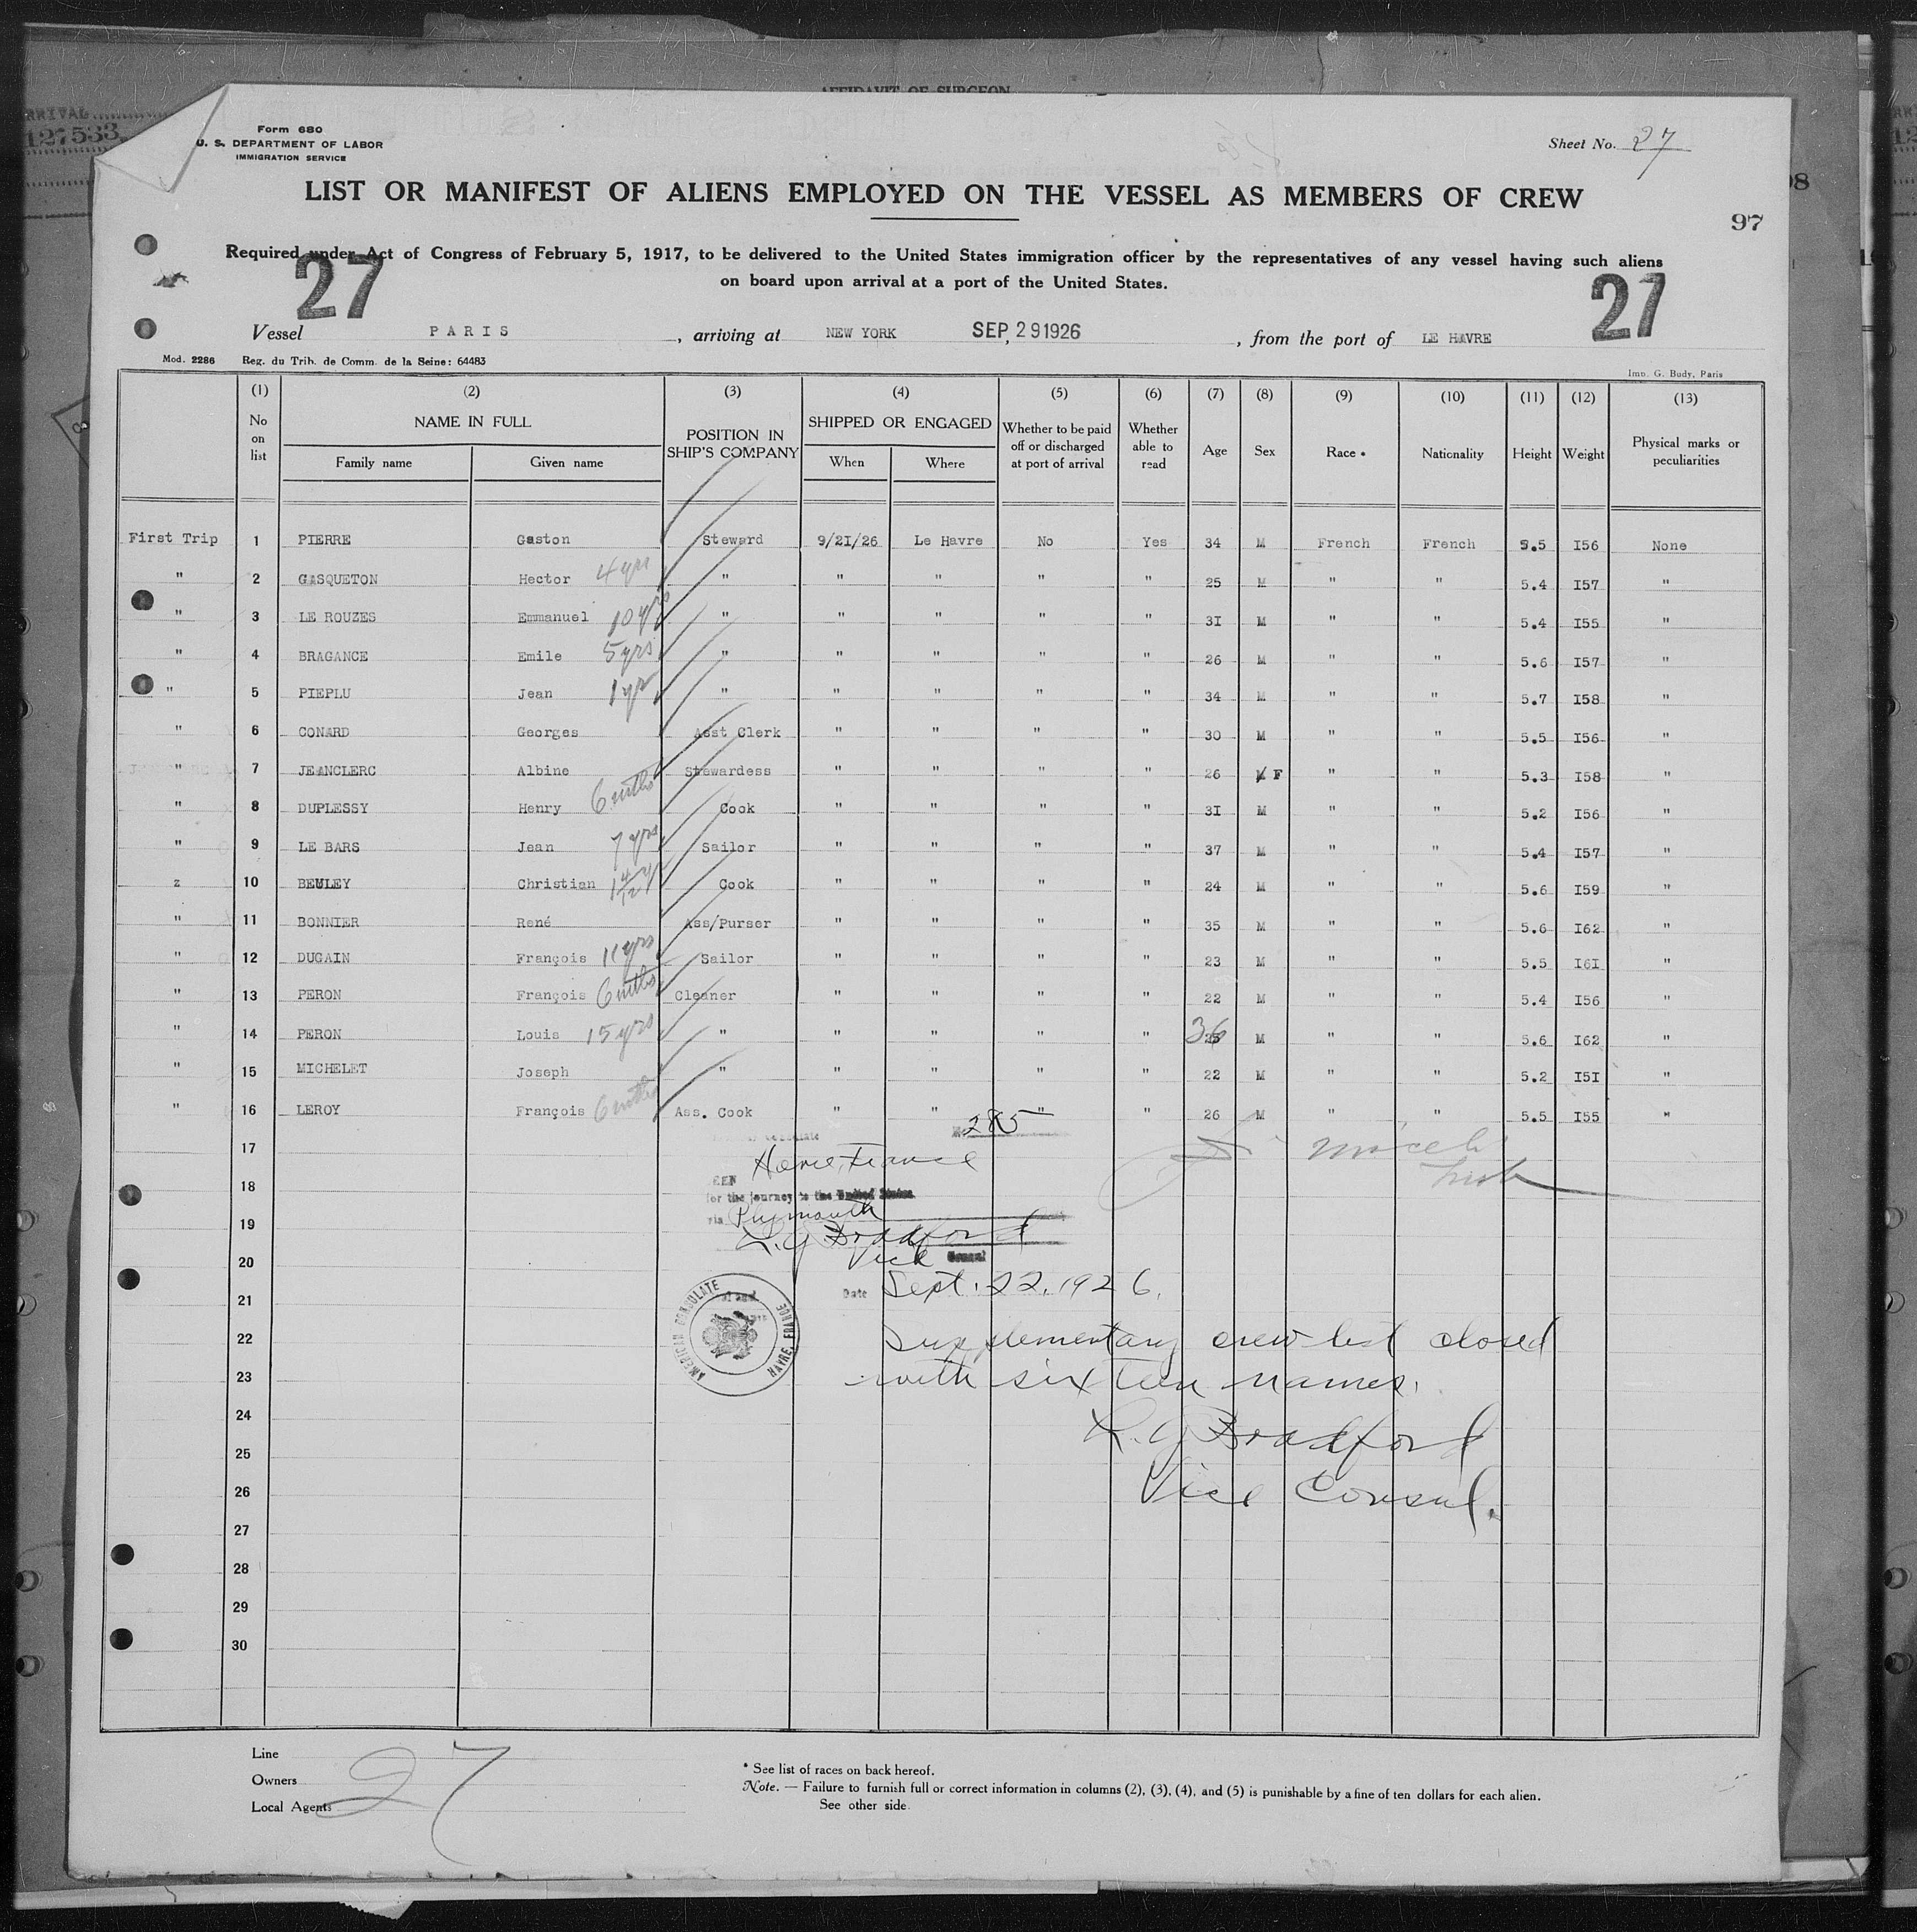 AFFIDAVIT OF SURGEON
RRIVAL
127533
Form 680
U. S. DEPARTMENT OF LABOR
IMMIGRATION SERVICE
Sheet No. 27
LIST OR MANIFEST OF ALIENS EMPLOYED ON THE VESSEL AS MEMBERS OF CREW
97
98
Required under Act of Congress of February 5, 1917, to be delivered to the United States immigration officer by the representatives of any vessel having such aliens
on board upon arrival at a port of the United States.
27 27
Vessel PARIS, arriving at NEW YORK SEP, 291926, from the port of LE HAVRE
Mod. 2286 Reg. du Trib. de Comm. de la Seine: 64483
Imp. G. Budy, Paris
(1) (2) (3) (4) (5) (6) (7) (8) (9) (10) (11) (12) (13)
No on list NAME IN FULL POSITION IN SHIP'S COMPANY SHIPPED OR ENGAGED Whether to be paid off or discharged at port of arrival Whether able to read Age Sex Race * Nationality Height Weight Physical marks or peculiarities
Family name Given name When Where
First Trip 1 PIERRE Gaston Steward 9/2I/26 Le Havre No Yes 34 M French French 5.5 I56 None
" 2 GASQUETON Hector 4 yrs " " " " " 25 M " " 5.4 I57 "
" 3 LE ROUZES Emmanuel 10 yrs " " " " " 3I M " " 5.4 I55 "
" 4 BRAGANCE Emile 5 yrs " " " " " 26 M " " 5.6 I57 "
" 5 PIEPLU Jean 1 yr " " " " " 34 M " " 5.7 I58 "
" 6 CONARD Georges Asst Clerk " " " " 30 M " " 5.5 I56 "
" 7 JEANCLERC Albine Stewardess " " " " 26 F " " 5.3 I58 "
" 8 DUPLESSY Henry 6 mths Cook " " " " 3I M " " 5.2 I56 "
" 9 LE BARS Jean 7 yrs Sailor " " " " 37 M " " 5.4 I57 "
z 10 BEULEY Christian 1 4/12 yr Cook " " " " 24 M " " 5.6 I59 "
" 11 BONNIER René Ass/Purser " " " " 35 M " " 5.6 I62 "
" 12 DUGAIN François 11 yrs Sailor " " " " 23 M " " 5.5 I6I "
" 13 PERON François 6 mths Cleaner " " " " 22 M " " 5.4 I56 "
" 14 PERON Louis 15 yrs " " " " " 36 M " " 5.6 I62 "
" 15 MICHELET Joseph " " " " " 22 M " " 5.2 I5I "
" 16 LEROY François 6 mths Ass. Cook " " " " 26 M " " 5.5 I55 "
17
285
Havre, France
18
EEN
for the journey to the United States
19
via Plymouth
L. G Bradford
20
Vice Consul
21
Date Sept. 22, 1926.
AMERICAN CONSULATE HAVRE, FRANCE
22
Supplementary crew list closed
23
with sixteen names.
24
L. G Bradford
25
26
Vice Consul.
27
28
29
30
Line
Owners
Local Agents
27
* See list of races on back hereof.
Note. — Failure to furnish full or correct information in columns (2), (3), (4), and (5) is punishable by a fine of ten dollars for each alien.
See other side.